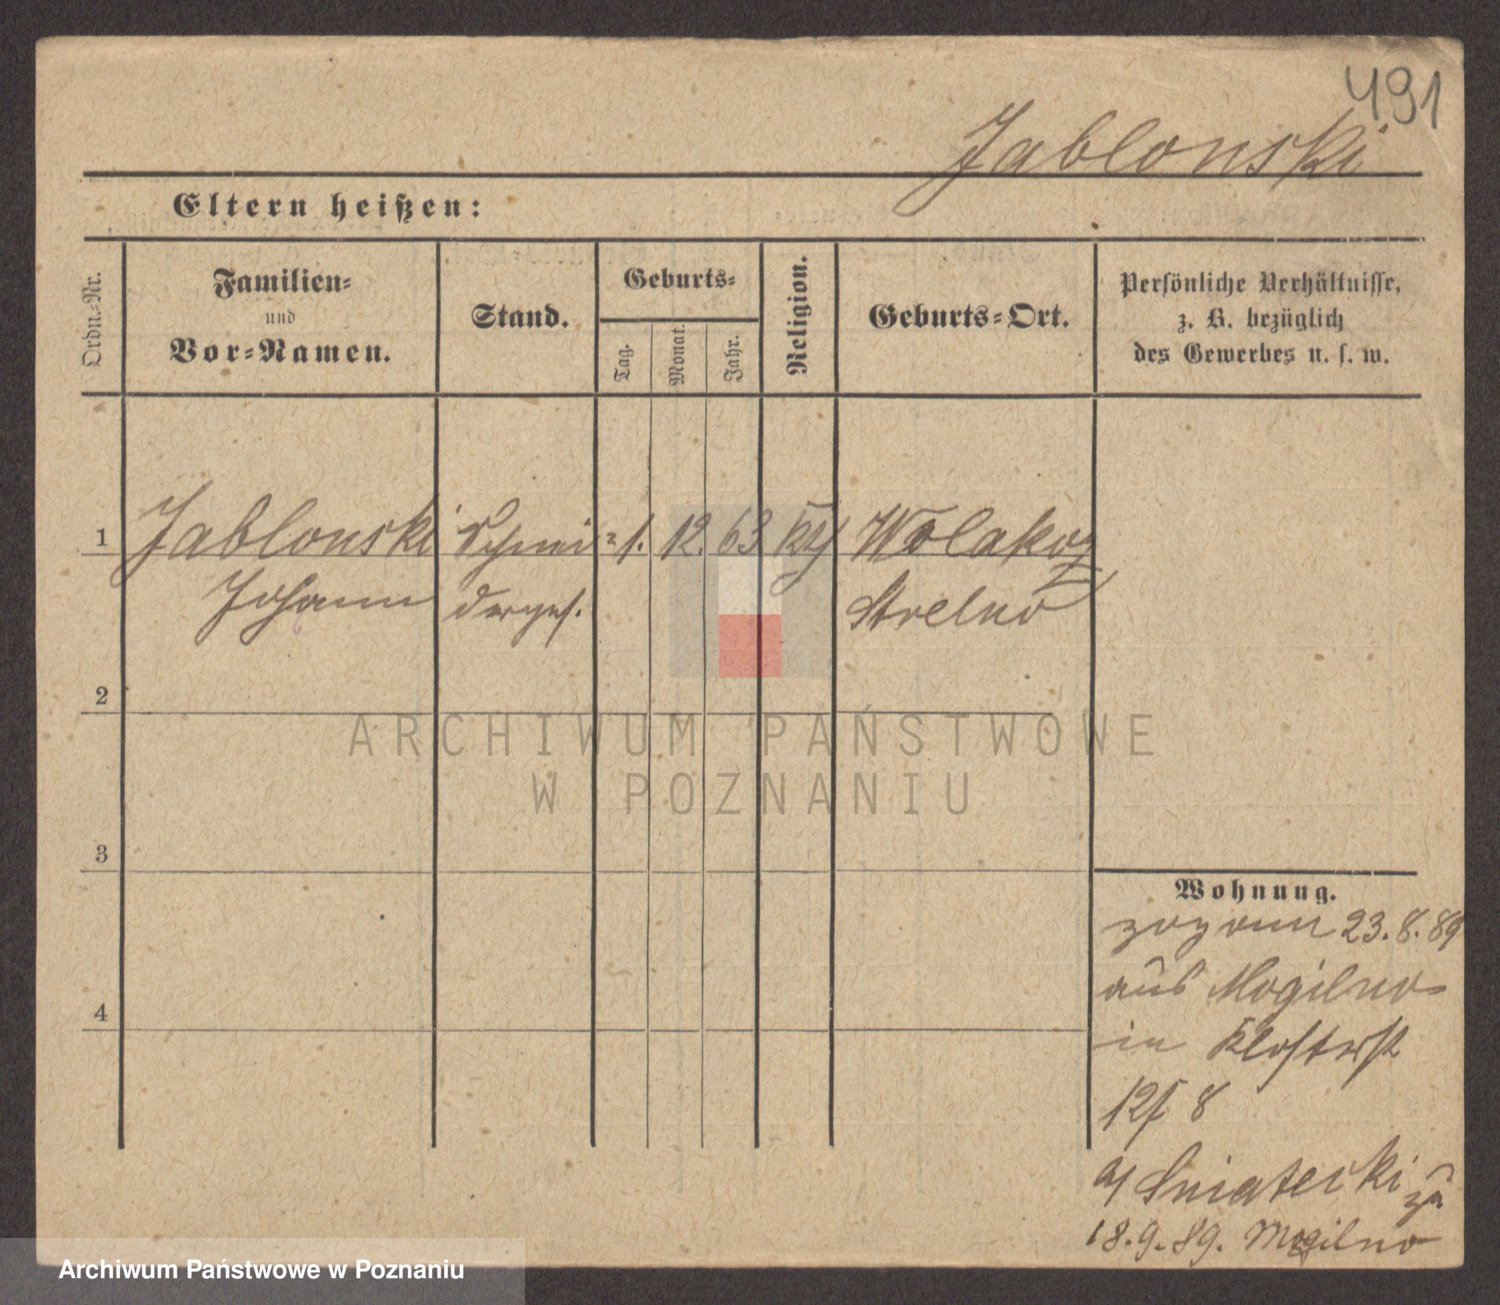 491
Jablonski
Eltern heißen:
Ordn.-Nr.
Familien-
und
Vor-Namen.
Stand.
Geburts-
Tag.
Monat.
Jahr.
Religion.
Geburts-Ort.
Persönliche Verhältnisse,
z. B. bezüglich
des Gewerbes u. s. w.
1 Jablonski Schnei- 1. 12. 63 Kth
Johann derges. Strelno
2
3
4
Wohnung.
zog am 23.8.89
aus Mogilno
in Klosterst
12 8
Sniatecki zu
18.9.89. Mogilno
ARCHIWUM PAŃSTWOWE
W POZNANIU
Archiwum Państwowe w Poznaniu